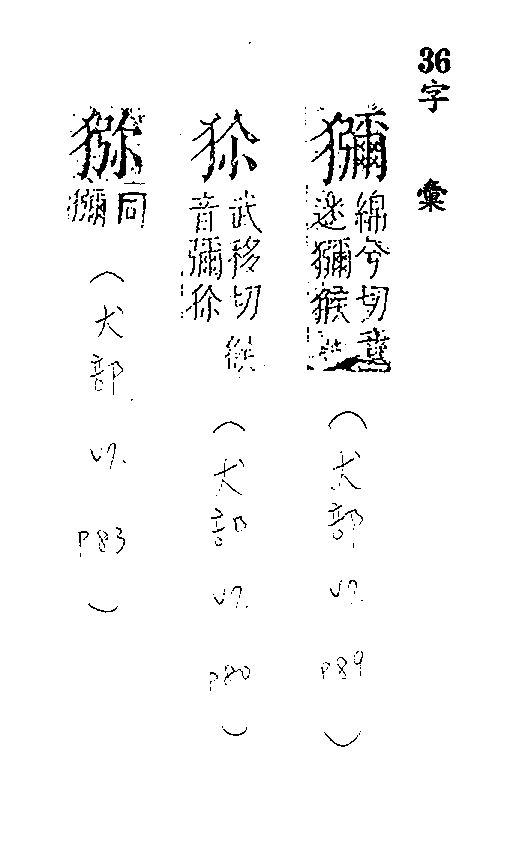 36字彙
獼
綿兮切音
迷獼猴
(犬部 V7. P89)
狝
武移切
音彌狝猴
(犬部 V7. P80)
猕
同獼
(犬部 V7. P83)